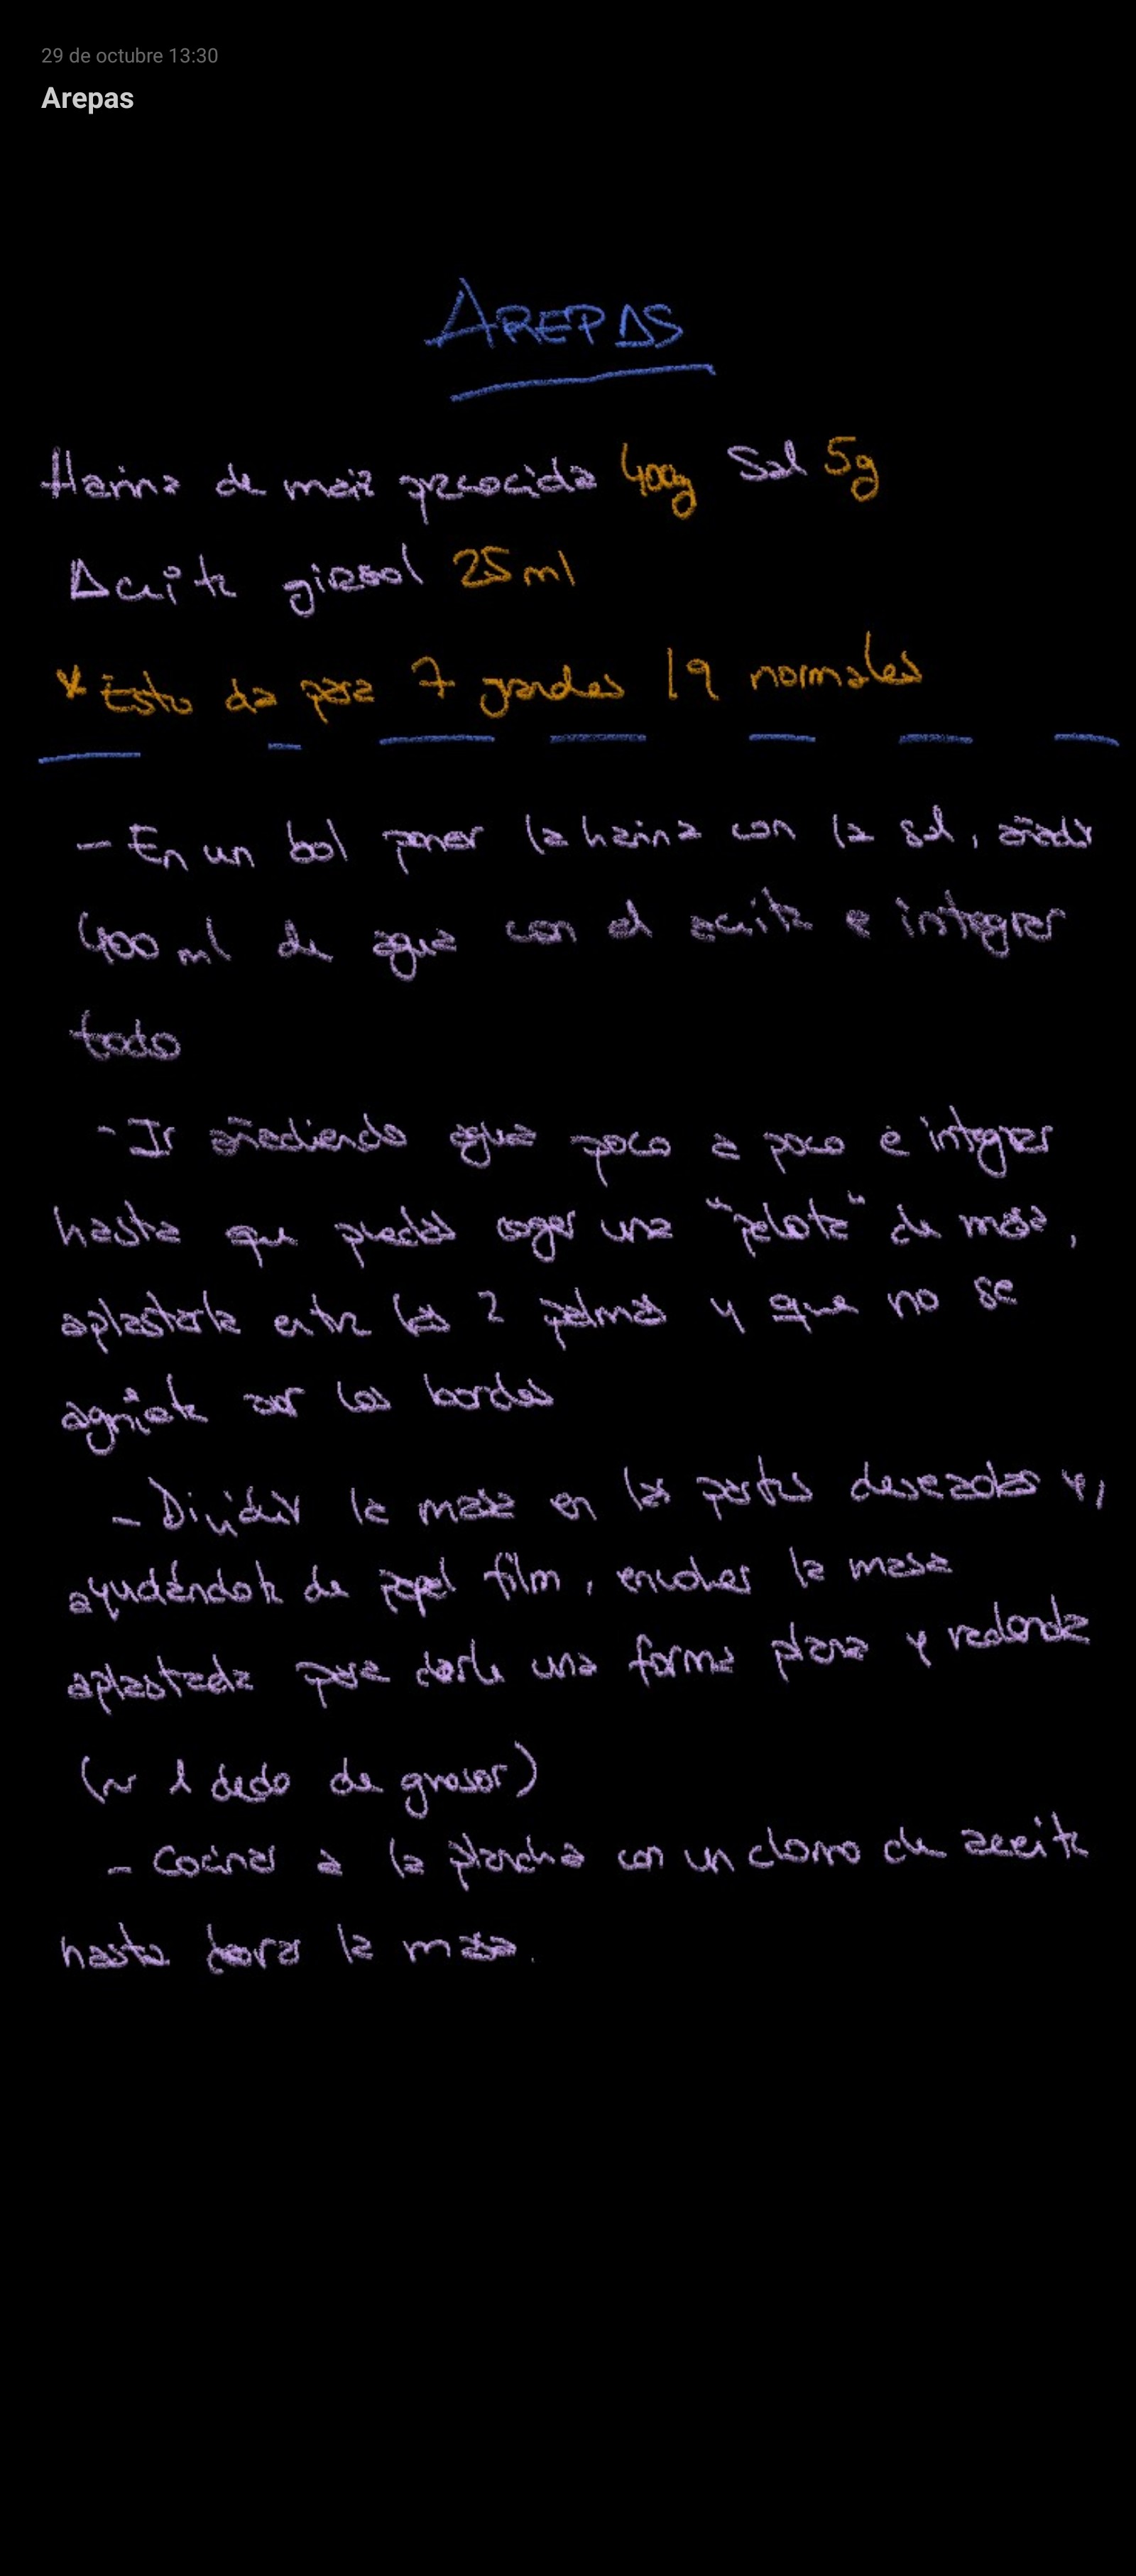 29 de octubre 13:30
Arepas
AREPAS
Harina de maiz precocida 400g Sal 5g
Aceite girasol 25ml
* Esto da para 7 grandes / 9 normales
- En un bol poner la harina con la sal, añadir
400 ml de agua con el aceite e integrar
todo
- Ir añadiendo agua poco a poco e integrar
hasta que puedas coger una "pelota" de masa,
aplastarla entre las 2 palmas y que no se
agriete por los bordes
- Dividir la masa en las partes deseadas y,
ayudándote de papel film, envolver la masa
aplastada para darle una forma plana y redonda
(~ 1 dedo de grosor)
- Cocinar a la plancha con un chorro de aceite
hasta dorar la masa.